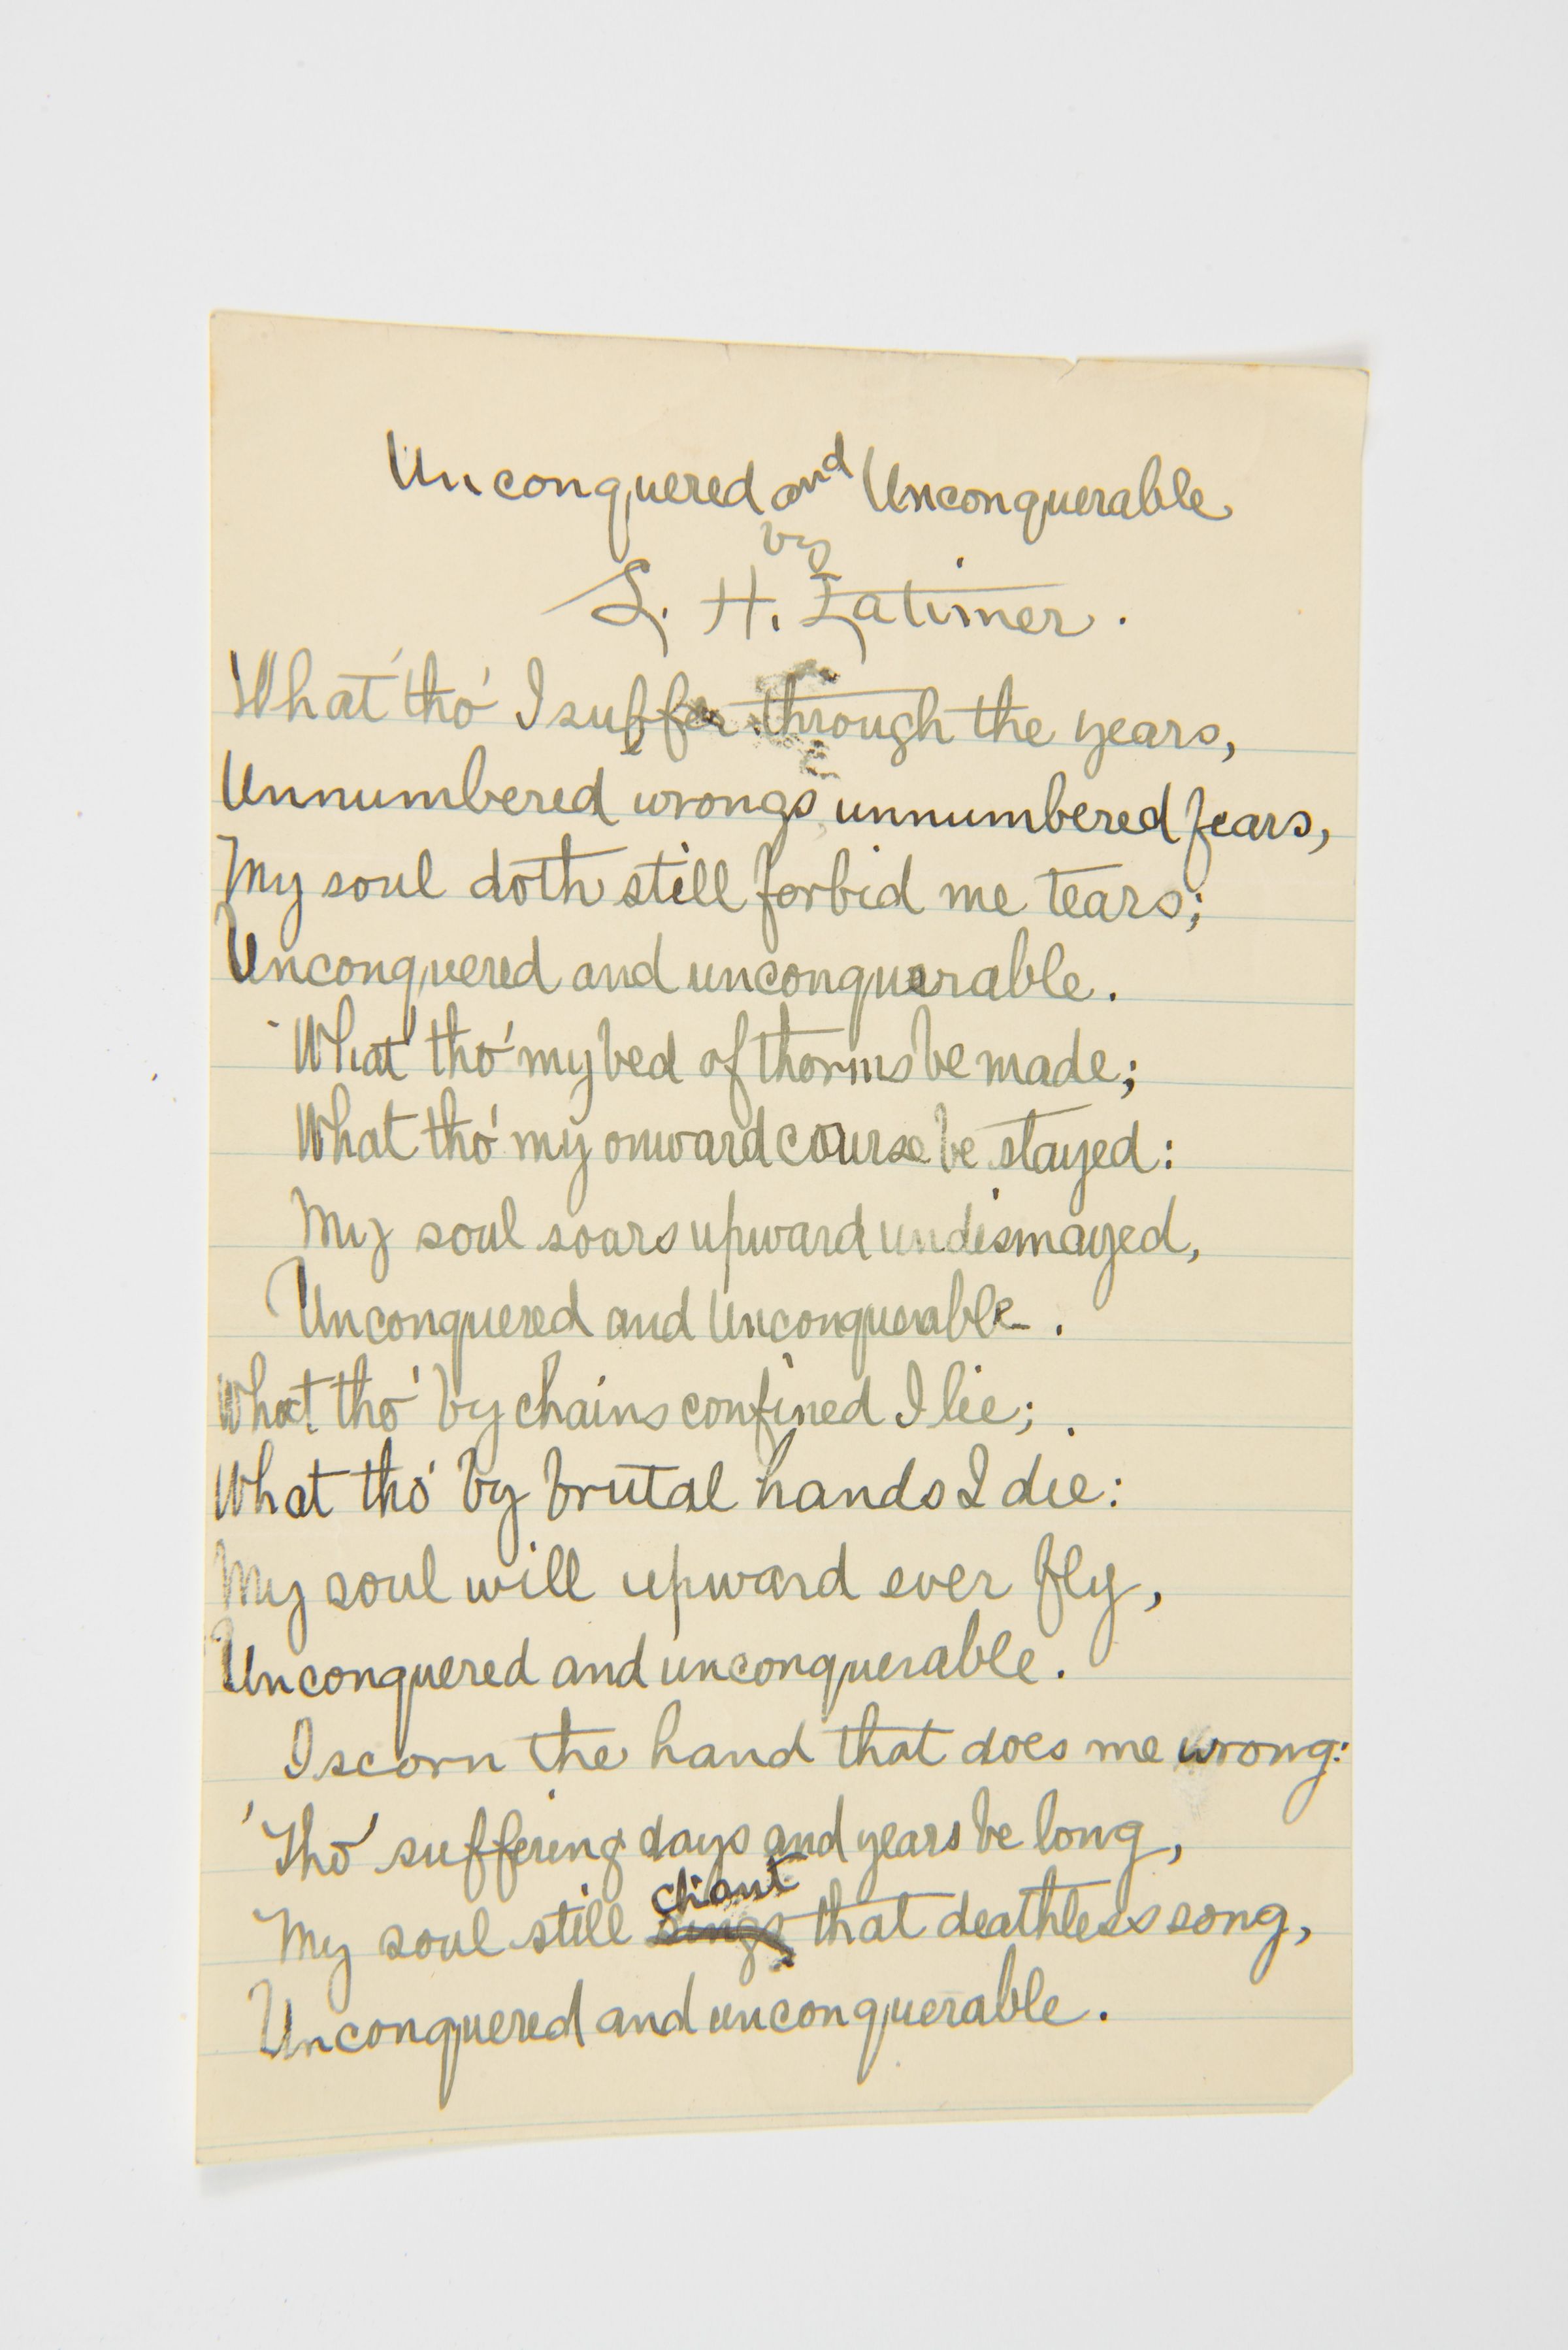 Unconquered and Unconquerable
by
L. H. Latimer.
What tho' I suffer through the years,
Unnumbered wrongs, unnumbered fears,
My soul doth still forbid me tears;
Unconquered and unconquerable.
What tho' my bed of thorns be made;
What tho' my onward course be stayed:
My soul soars upward undismayed,
Unconquered and Unconquerable.
What tho' by chains confined I lie;
What tho' by brutal hands I die:
My soul will upward ever fly,
Unconquered and unconquerable.
I scorn the hand that does me wrong:
'Tho' suffering days and years be long,
chant
My soul still sings that deathless song,
Unconquered and unconquerable.